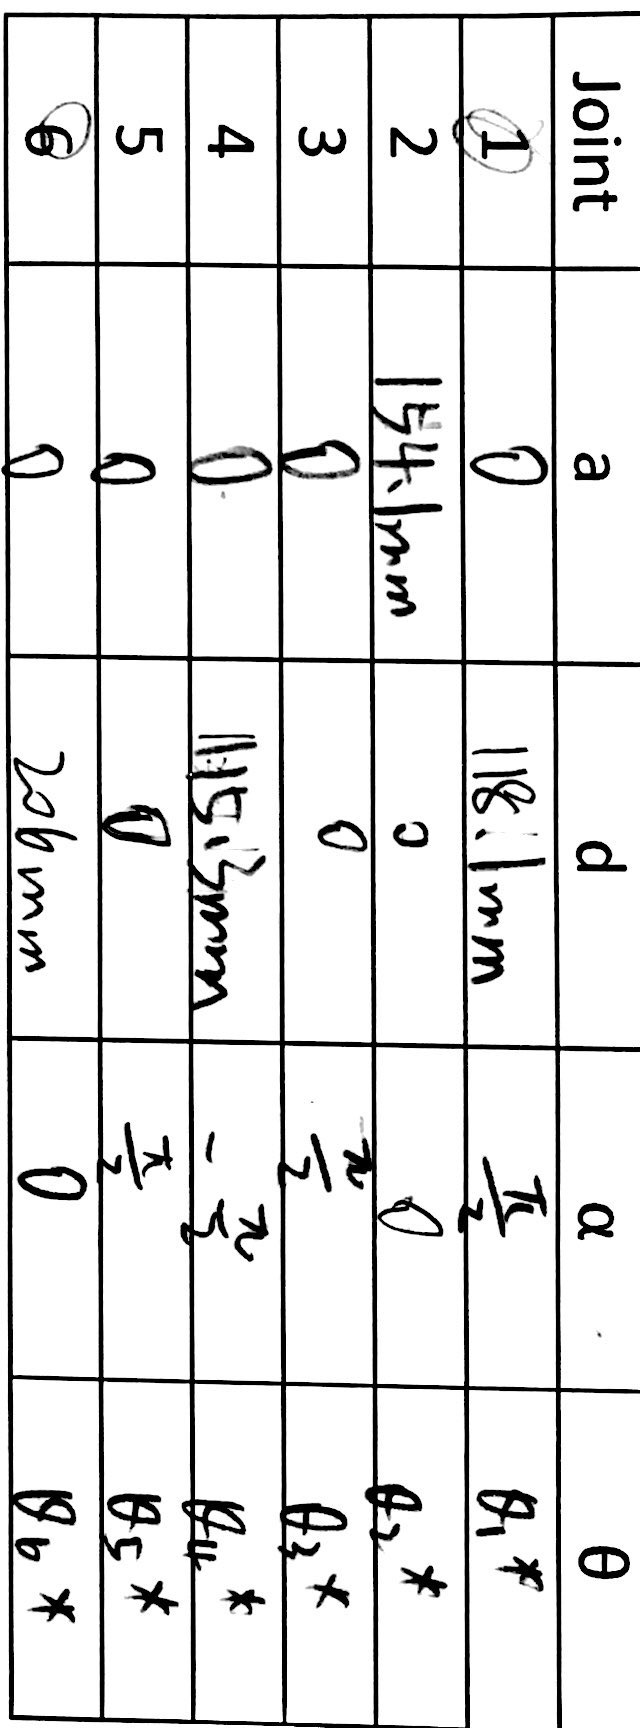 Joint a d α θ
1 0 118.1mm π/2 θ1*
2 154.1mm 0 0 θ2*
3 0 0 π/2 θ3*
4 0 -π/2 θ4*
5 0 0 π/2 θ5*
6 0 206mm 0 θ6*